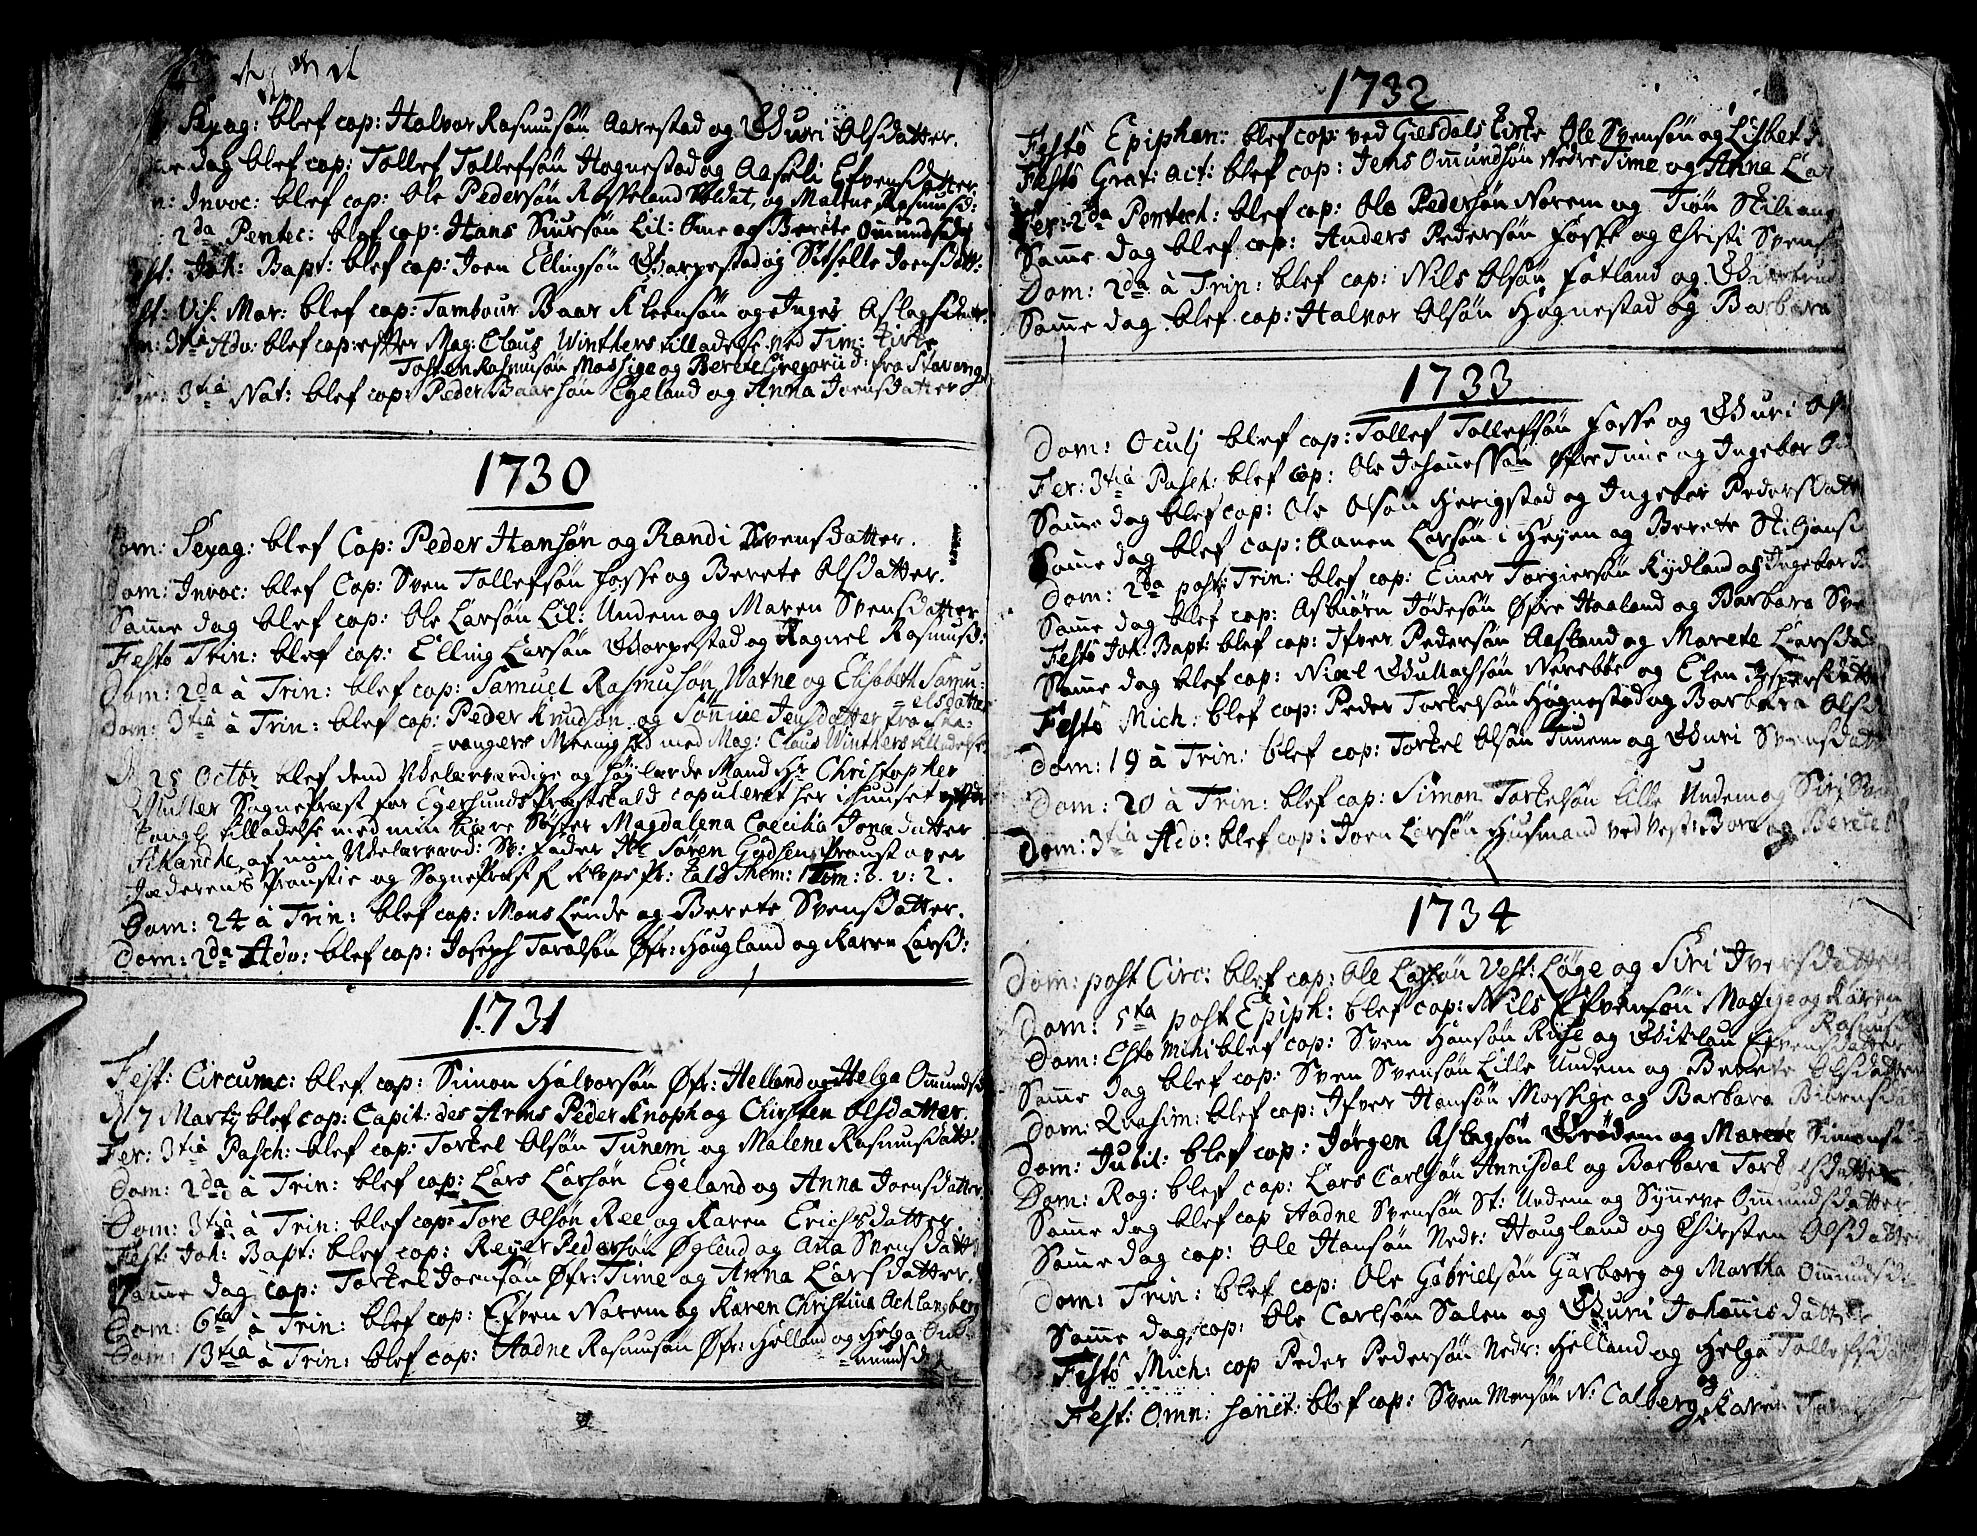 Sexag: blef cop: Halvor Rasmusøn Aarestad og Guri Olsdatter.
dag blef cop: Tollef Tollefsøn Hognestad og Aaseli Efvensdatter
Invoc: blef cop: Ole Pedersøn Rosseland Soldat, og Malene Rasmusd:
2da Pentec: blef cop: Hans Siursøn Lil: Ome og Berete Omundsd
Joh: Bapt: blef cop: Joen Ellingsøn Garpestad og Sitselle Joensdatt:
Vis: Mar: blef cop: Tambour Baar Kleensøn og Inger Aslagsdatter.
3tia Adv: blef cop: efter Mag: Claus Winthers tilladelse ved Tim: Kirke
Tosten Rasmusøn Mossige og Berete Gregorii d: fra Stavang
3tia Nat: blef cop: Peder Baarsøn Egeland og Anna Joensdatter
1730
Dom: Sexag: blef Cop: Peder Hansøn og Randi Svensdatter.
Dom: Invoc: blef Cop: Sven Tollefsøn Fosse og Berete Olsdatter.
Samme dag blef cop: Ole Larsøn Lil: Undem og Maren Svensdatter
Festo Trin: blef cop: Elling Larsøn Garpestad og Ragnel Rasmusd:
Dom: 2da à Trin: blef cop: Samuel Rasmusøn Watne og Elisabeth Samu-
elsdatter
Dom: 3tia à Trin: blef cop: Peder Knudsøn og Sønnive Jensdatter fra Sta-
vangers Meenighed med Mag: Claus Winthers tilladelse
25 Octbr blef dend Velærværdige og Høylærde Mand Hr Christopher
Sogneprest for Egersunds Præstekald copuleret her i huuset efter
Kongl: tilladelse med min kiære Søster Magdalena Cæcilia Jonædatter
af min Velærværd: Sv: fader Hr Søren Godsen Proust over
Jæderens Proustie og SognePræst Klops Pr: Kald Them: 1 Tim: 6. v: 2.
Dom: 24 à Trin: blef cop: Mons Lende og Berete Svensdatter.
Dom: 2da Adv: blef cop: Joseph Toralsøn Øfr: Hougland og Karen Larsd:
1731
Fest: Circumc: blef cop: Simon Halvorsøn Øfr: Helland og Helga Omundsd
d 7 Martij blef cop: Capit: des Arms Peder Knoph og Chirsten Olsdatter.
Fer: 3tia Pasch: blef cop: Torkel Olsøn Tunem og Malene Rasmusdatt:
Dom: 2da à Trin: blef cop: Lars Larsøn Egeland og Anna Joensdatter
Dom: 3tia à Trin: blef cop: Tore Olsøn Ree og Karen Erichsdatter.
Fest: Joh: Bapt: blef cop: Reyer Pedersøn Øglend og Ana Svensdatt
Samme dag cop: Torkel Joensøn Øfr: Time og Anna Larsdatter.
Dom: 6ta à Trin: blef cop: Efven Norem og Karen Christina Achlangberg
Dom: 13tia à Trin: blef cop: Aadne Rasmusøn Øfr: Helland og Helga Om-
mundsd
1732
Festo Epiphan: blef cop: ved Giesdals Kirke Ole Svensøn og Lisbet
Festo Grat: Act: blef cop: Jens Omundsøn Nedre Time og Anna Lar
Fer: 2da Pentech: blef cop: Ole Pedersøn Norem og Tiøn Stiliang
Samme dag blef cop: Anders Pedersøn Fosse og Christi Svens
Dom: 2da à Trin: blef cop: Nils Olsøn Fotland og Giertrud
Samme dag blef cop: Halvor Olsøn Hognestad og Barbara
1733
Dom: Oculj blef cop: Tollef Tollefsøn Fosse og Guri Ols
Fer: 3tia Pasch: blef cop: Ole Johannessøn Øfre Time og Ingebor
Samme dag blef cop: Ole Olsøn Herigstad og Ingebor Pedersdatt
Samme dag blef cop: Aanen Larsøn i Heyen og Berete Stiliansd
Dom: 2da post: Trin: blef cop: Einer Torgiersøn Kydland og Ingebor
Samme dag blef cop: Asbiørn Tødesøn Øfre Haaland og Barbara Sve
Festo Joh: Bapt: blef cop: Ifver Pedersøn Aasland og Marete Larsda
Samme dag blef cop: Niæl Gullachsøn Nerebøe og Elen Jespersdatt
Festo Mich: blef cop: Peder Torkelsøn Hognestad og Barbara Olsd
Dom: 19 à Trin: blef cop: Torkel Olsøn Tunem og Guri Svensdatt
Dom: 20 à Trin: blef cop: Simon Torkelsøn Lille Undem og Siri Sv
Dom: 3tia Adv: blef cop: Joen Larsøn Husmand ved Vest: Bore og Berete
1734
Dom: post Circ: blef cop: Ole Larsøn Vest: Løge og Siri Iversdatter
Dom: 5ta post Epiph: blef cop: Nils Efvensøn Mossige og Karen
Rasmusd
Dom: Esto mihi blef cop: Sven Hansøn Rise og Gitlau Efvensdatter
Samme dag blef cop: Sven Svensøn Lille Undem og Berete Olsdatter
Dom: Qvasim: blef cop: Ifver Hansøn Mossige og Barbara Biørnsda
Dom: Jubil: blef cop: Jørgen Aslagsøn Brødem og Marete Simonsd
Dom: Rog: blef cop: Lars Carlsøn Annisdal og Barbara Torkelsdatter
Samme dag blef cop Aadne Svensøn St: Undem og Synneve Ommundsdatter
Samme dag cop: Ole Hansøn Nedr: Hougland og Chirsten Olsdatter
Dom: Trin: blef cop: Ole Gabrielsøn Garborg og Martha Ommundsd
Samme dag cop: Ole Carlsøn Salen og Guri Johannisdatter
Festo Mich: cop Peder Pedersøn Nedr: Helland og Helga Tollefsd
Fest: Omn: sanct: blef cop: Sven Monsøn N: Calberg og Karen